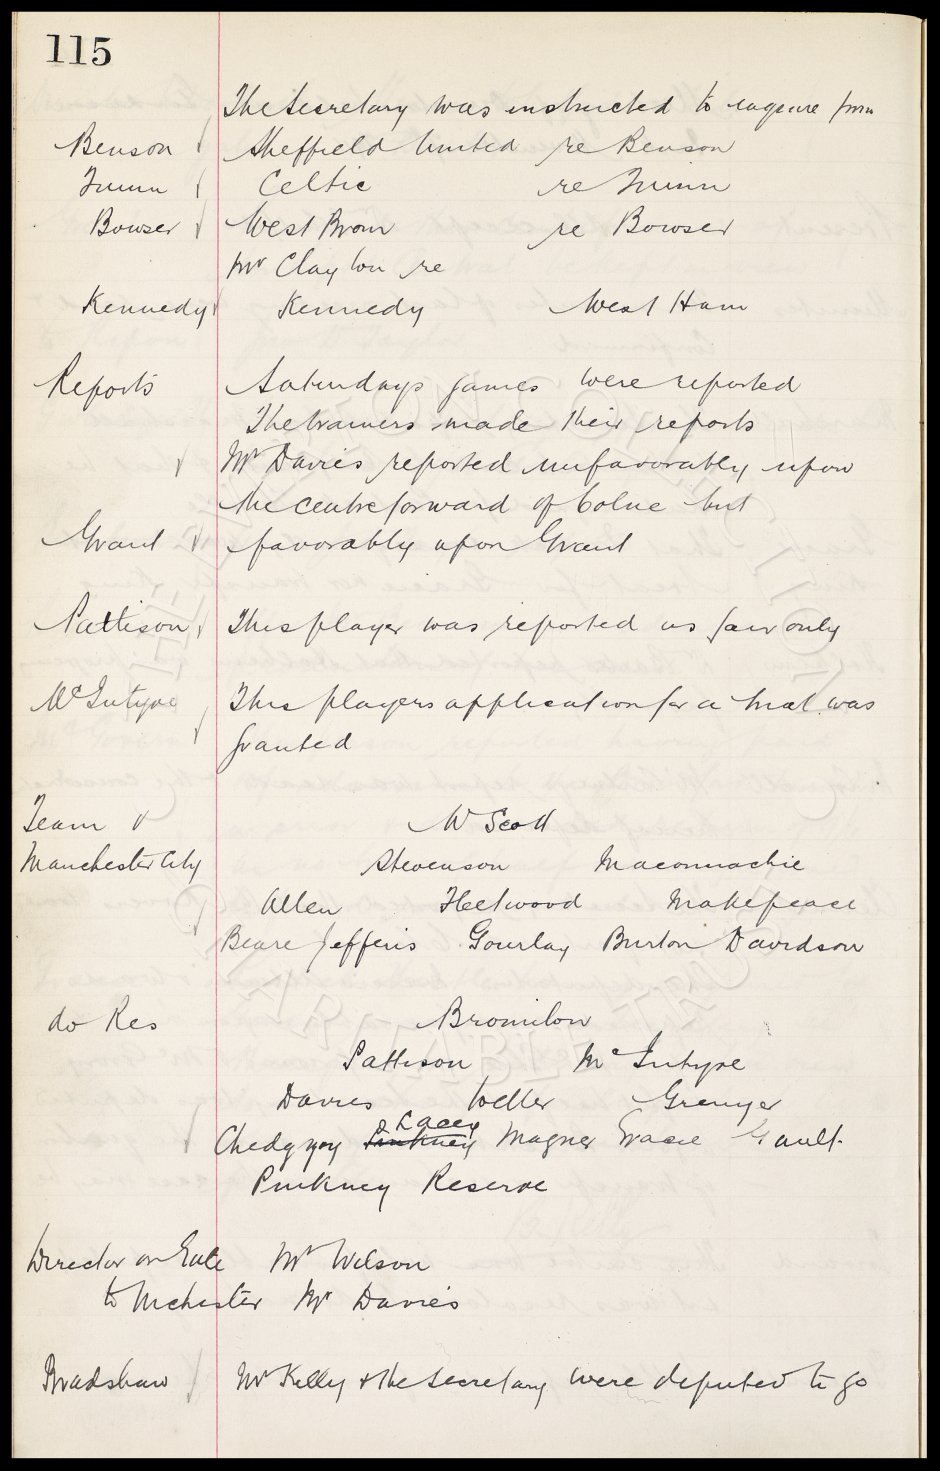 115
The Secretary was instructed to enquire from
Benson Sheffield United re Benson
Quinn Celtic re Quinn
Bowser West Brom re Bowser
Mr Clayton re
Kennedy Kennedy West Ham
Reports Saturdays games were reported
The trainers made their reports
Mr Davies reported unfavorably upon
the centre forward of Colne but
Grant favorably upon Grant
Pattison This player was reported as fair only
McIntyre This players application for a trial was
granted
Team W Scott
Manchester City Stevenson Maconnachie
Allen Fleetwood Makepeace
Beare Jefferis Gourlay Burton Davidson
do Res Bromilow
Pattison McIntyre
Davies Weller Grenyer
Lacey
Chedgzoy Pinkney Magner Gracie Gault
Pinkney Reserve
Director on Gate Mr Wilson
to Mchester Mr Davies
Bradshaw Mr Kelly & the Secretary were deputed to go